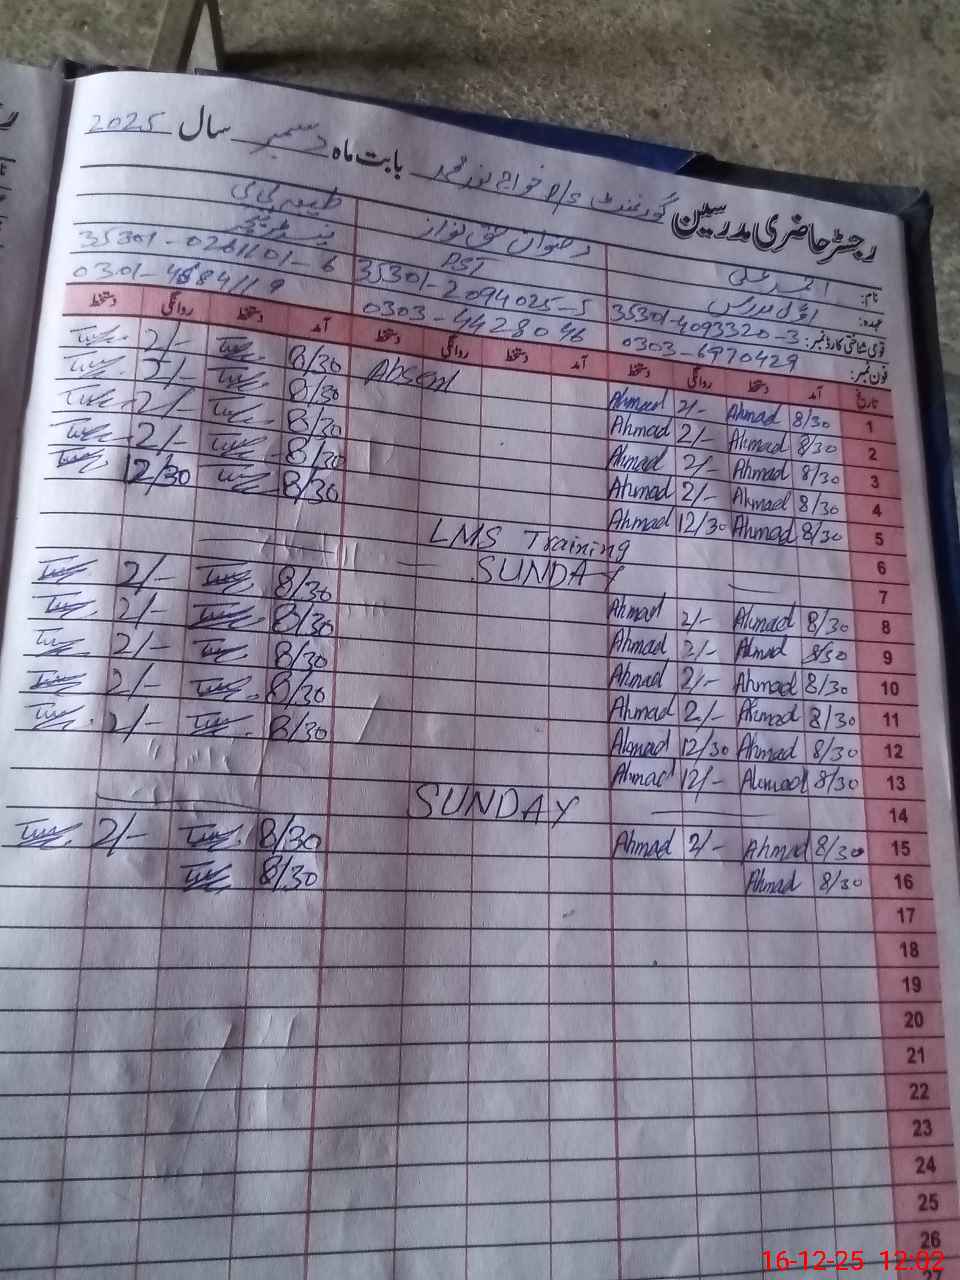 رجسٹر حاضری مدرسین گورنمنٹ P/S خواج نور محمد بابت ماہ دسمبر سال 2025
نام: احمد علی رضوان حق نواز طیبہ بی بی
عہدہ: PST
قومی شناختی کارڈ نمبر: 35301-4093320-3 35301-2094025-5
فون نمبر: 0303-6970429 0303-4428046
تاریخ آمد دستخط روانگی دستخط آمد دستخط روانگی دستخط آمد دستخط روانگی دستخط
1 8/30 Ahmad 2/- Ahmad Absent 8/30 2/-
2 8/30 Ahmad 2/- Ahmad 8/30 2/-
3 8/30 Ahmad 2/- Ahmad 8/30 2/-
4 8/30 Ahmad 2/- Ahmad 8/30 2/-
5 8/30 Ahmad 12/30 Ahmad 8/30 12/30
6 LMS Training
7 SUNDAY
8 8/30 Ahmad 2/- Ahmad 8/30 2/-
9 8/30 Ahmad 2/- Ahmad 8/30 2/-
10 8/30 Ahmad 2/- Ahmad 8/30 2/-
11 8/30 Ahmad 2/- Ahmad 8/30 2/-
12 8/30 Ahmad 12/30 Ahmad 8/30 2/-
13 8/30 Ahmad 12/- Ahmad
14 SUNDAY
15 8/30 Ahmad 2/- Ahmad 8/30 2/-
16 8/30 Ahmad 8/30
17
18
19
20
21
22
23
24
25
26
27
16-12-25 12:02